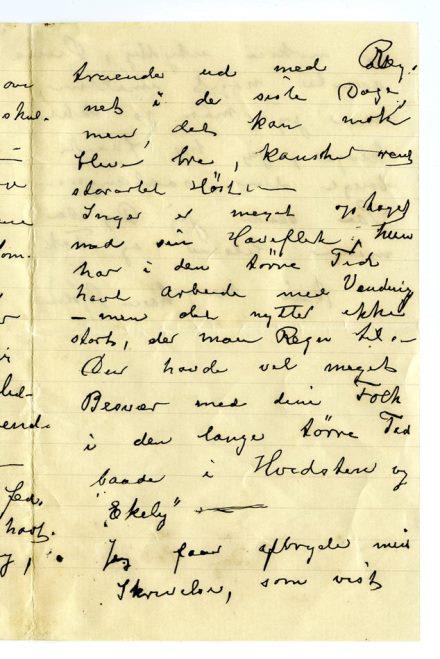 truende ud med Reg-
net i de siste Dage,
men, det kan nok
blive bra, kanske
storartet Høst —
Inga er meget optaget
med sin Haveflek, hun
har i den tørre Tid
havt Arbeide med Vanding
— men det nytter ikke
stort, der maa Regn til —
Du havde vel meget
Besvær med dine Folk
i den lange tørre Tid
baade i Hvidsten og
"Ekely" —
Jeg faar afbryde min
Skrivelse, som vist
over
skul-
—
om-
led-
ende-
—
havt.